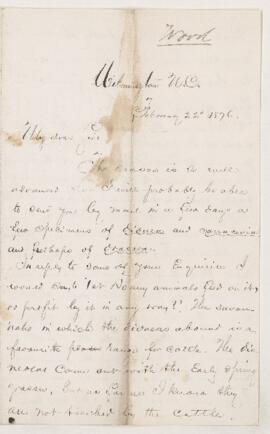 Wood
Wilmington N.C.
February 22d 1876.
My dear Sir
The season is so well
advanced that I will probably be able
to send you by mail in a few days a
few specimens of Dionea and Sarracenia
and perhaps of
In reply to some of your Enquiries I
would say 1st Do any animals feed on it,
or profit by it in any way? The savan-
nahs in which the dionaea abound is a
favourite range for cattle. The dio-
naeas come out with the Early Spring
grasses, but as far as I know they
are not touched by the cattle.